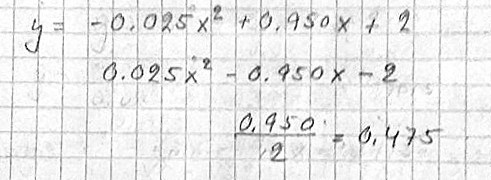 y = -0.025x² + 0.950x + 2
0.025x² - 0.950x - 2
0.950/2 = 0.475